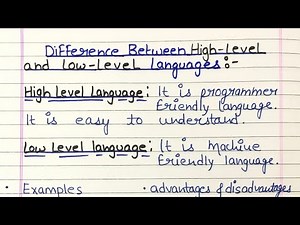 Difference Between High-level
and low-level languages:-
High level language: It is programmer
friendly language.
It is easy to understand.
Low Level language: It is Machine
friendly language.
• Examples • advantages & disadvantages